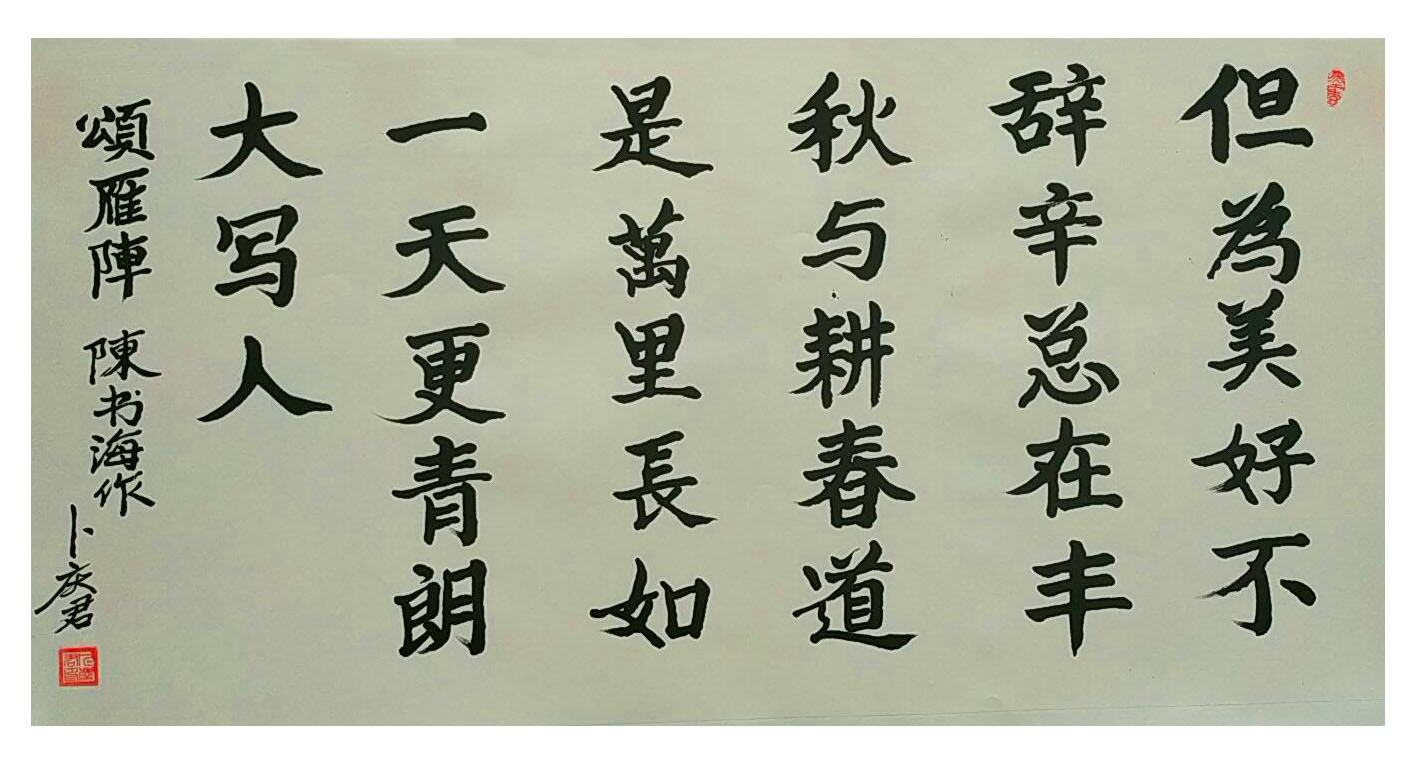 但為美好不
辞辛总在丰
秋与耕春道
是萬里長如
一天更青朗
大写人
頌雁陣 陳书海作
卜庆君